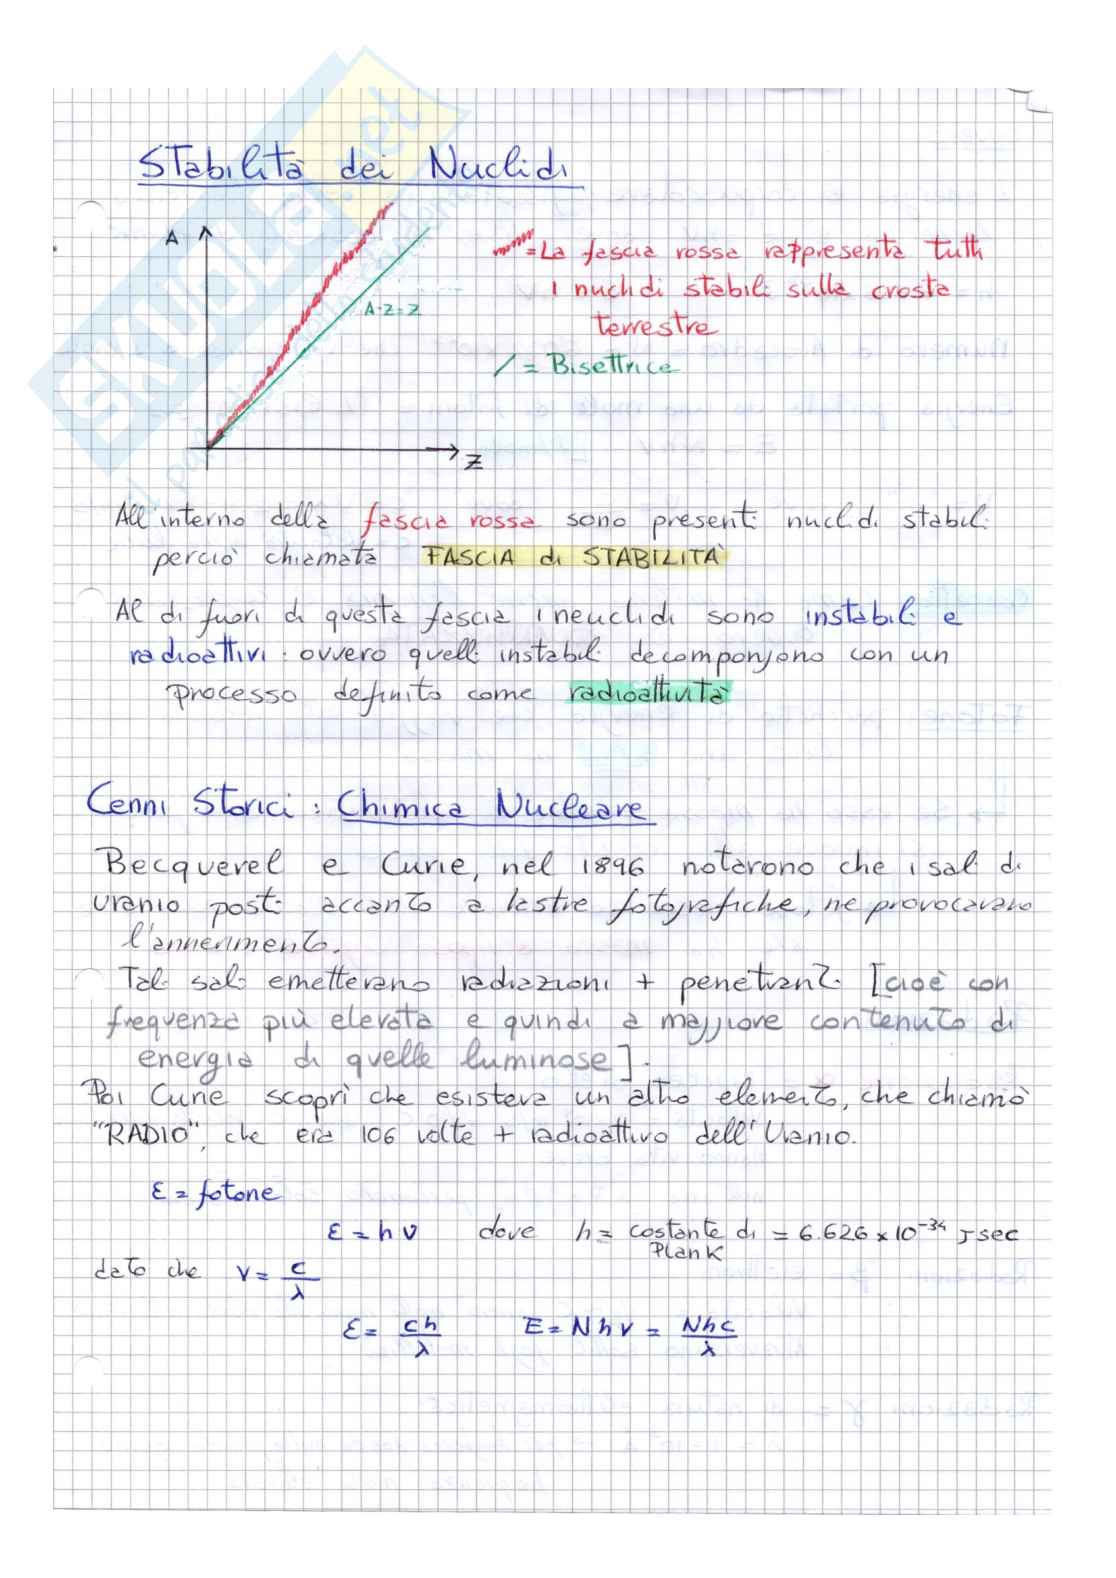 Stabilità dei Nuclidi
A
A-Z=Z
Z
=La fascia rossa rappresenta tutti
i nuclidi stabili sulla crosta
terrestre
/ = Bisettrice
All'interno della fascia rossa sono presenti nuclidi stabili
perciò chiamata FASCIA di STABILITÀ
Al di fuori di questa fascia i neuclidi sono instabili e
radioattivi: ovvero quelli instabili decompongono con un
processo definito come radioattività
Cenni Storici : Chimica Nucleare
Becquerel e Curie, nel 1896 notarono che i sali di
uranio posti accanto a lastre fotografiche, ne provocavano
l'annerimento.
Tali sali emettevano radiazioni + penetranti [cioè con
frequenza più elevata e quindi a maggiore contenuto di
energia di quelle luminose].
Poi Curie scoprì che esisteva un altro elemento, che chiamò
"RADIO", che era 106 volte + radioattivo dell'Uranio.
ε = fotone
ε = hν dove h = costante di = 6.626 x 10⁻³⁴ J sec
Plank
dato che ν = c/λ
ε = ch/λ E = Nhν = Nhc/λ
SKUOLA.net